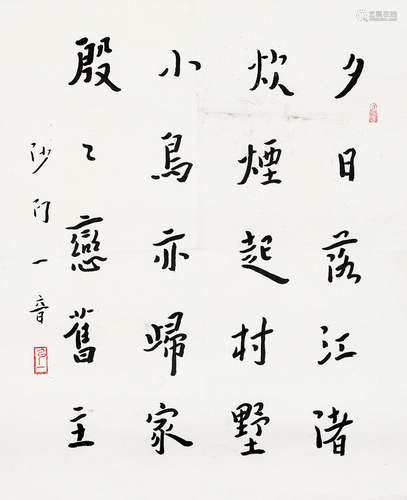 夕日落江渚
炊煙起村墅
小鳥亦歸家
殷〻戀舊主
沙門一音